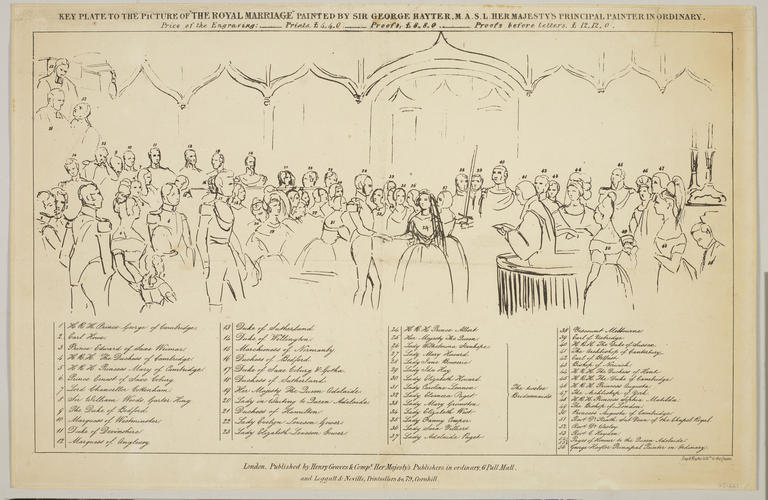 KEY PLATE TO THE PICTURE OF "THE ROYAL MARRIAGE" PAINTED BY SIR GEORGE HAYTER, M.A.S.L. HER MAJESTY'S PRINCIPAL PAINTER IN ORDINARY.
Price of the Engraving: Prints, £ 4.4.0 Proofs, £ 8.8.0 Proofs before letters, £ 12,12,0.
1 H.R.H. Prince George of Cambridge
2 Earl Howe
3 Prince Edward of Saxe Weimar
4 H.R.H. The Duchess of Cambridge
5 H.R.H. Princess Mary of Cambridge
6 Prince Ernest of Saxe Coburg
7 Lord Chancellor Cottenham
8 Sir William Woods Garter King
9 The Duke of Bedford
10 Marquess of Westminster
11 Duke of Devonshire
12 Marquess of Anglesey
13 Duke of Sutherland
14 Duke of Wellington
15 Marchioness of Normanby
16 Duchess of Bedford
17 Duke of Saxe Coburg & Gotha
18 Duchess of Sutherland
19 Her Majesty The Queen Adelaide
20 Lady in Waiting to Queen Adelaide
21 Duchess of Hamilton
22 Lady Evelyn Leveson Gower
23 Lady Elizabeth Leveson Gower
24 H.R.H. Prince Albert
25 Her Majesty The Queen
26 Lady Wilhelmina Stanhope
27 Lady Mary Howard
28 Lady Jane Bouverie
29 Lady Ida Hay
30 Lady Elizabeth Howard
31 Lady Caroline Lennox
32 Lady Eleanora Paget
33 Lady Mary Grimston
34 Lady Elizabeth West
35 Lady Fanny Cowper
36 Lady Sarah Villiers
37 Lady Adelaide Paget
The twelve
Bridesmaids
38 Viscount Melbourne
39 Earl of Uxbridge
40 H.R.H. The Duke of Sussex
41 The Archbishop of Canterbury
42 Earl of Belfast
43 Bishop of Norwich
44 H.R.H. The Duchess of Kent
45 H.R.H. The Duke of Cambridge
46 H.R.H. Princess Augusta
47 The Archbishop of York
48 H.R.H. Princess Sophia Matilda
49 The Bishop of London
50 Princess Augusta of Cambridge
51 Revd Dr Smith, Sub Dean of the Chapel Royal
52 Revd Dr Wesley
53 Revd C. Haydon
Pages of Honour to the Queen Adelaide
56 George Hayter Principal Painter in Ordinary
London, Published by Henry Graves & Compy Her Majesty's Publishers in ordinary, 6 Pall Mall,
and Leggatt & Neville, Printsellers &c, 79, Cornhill.